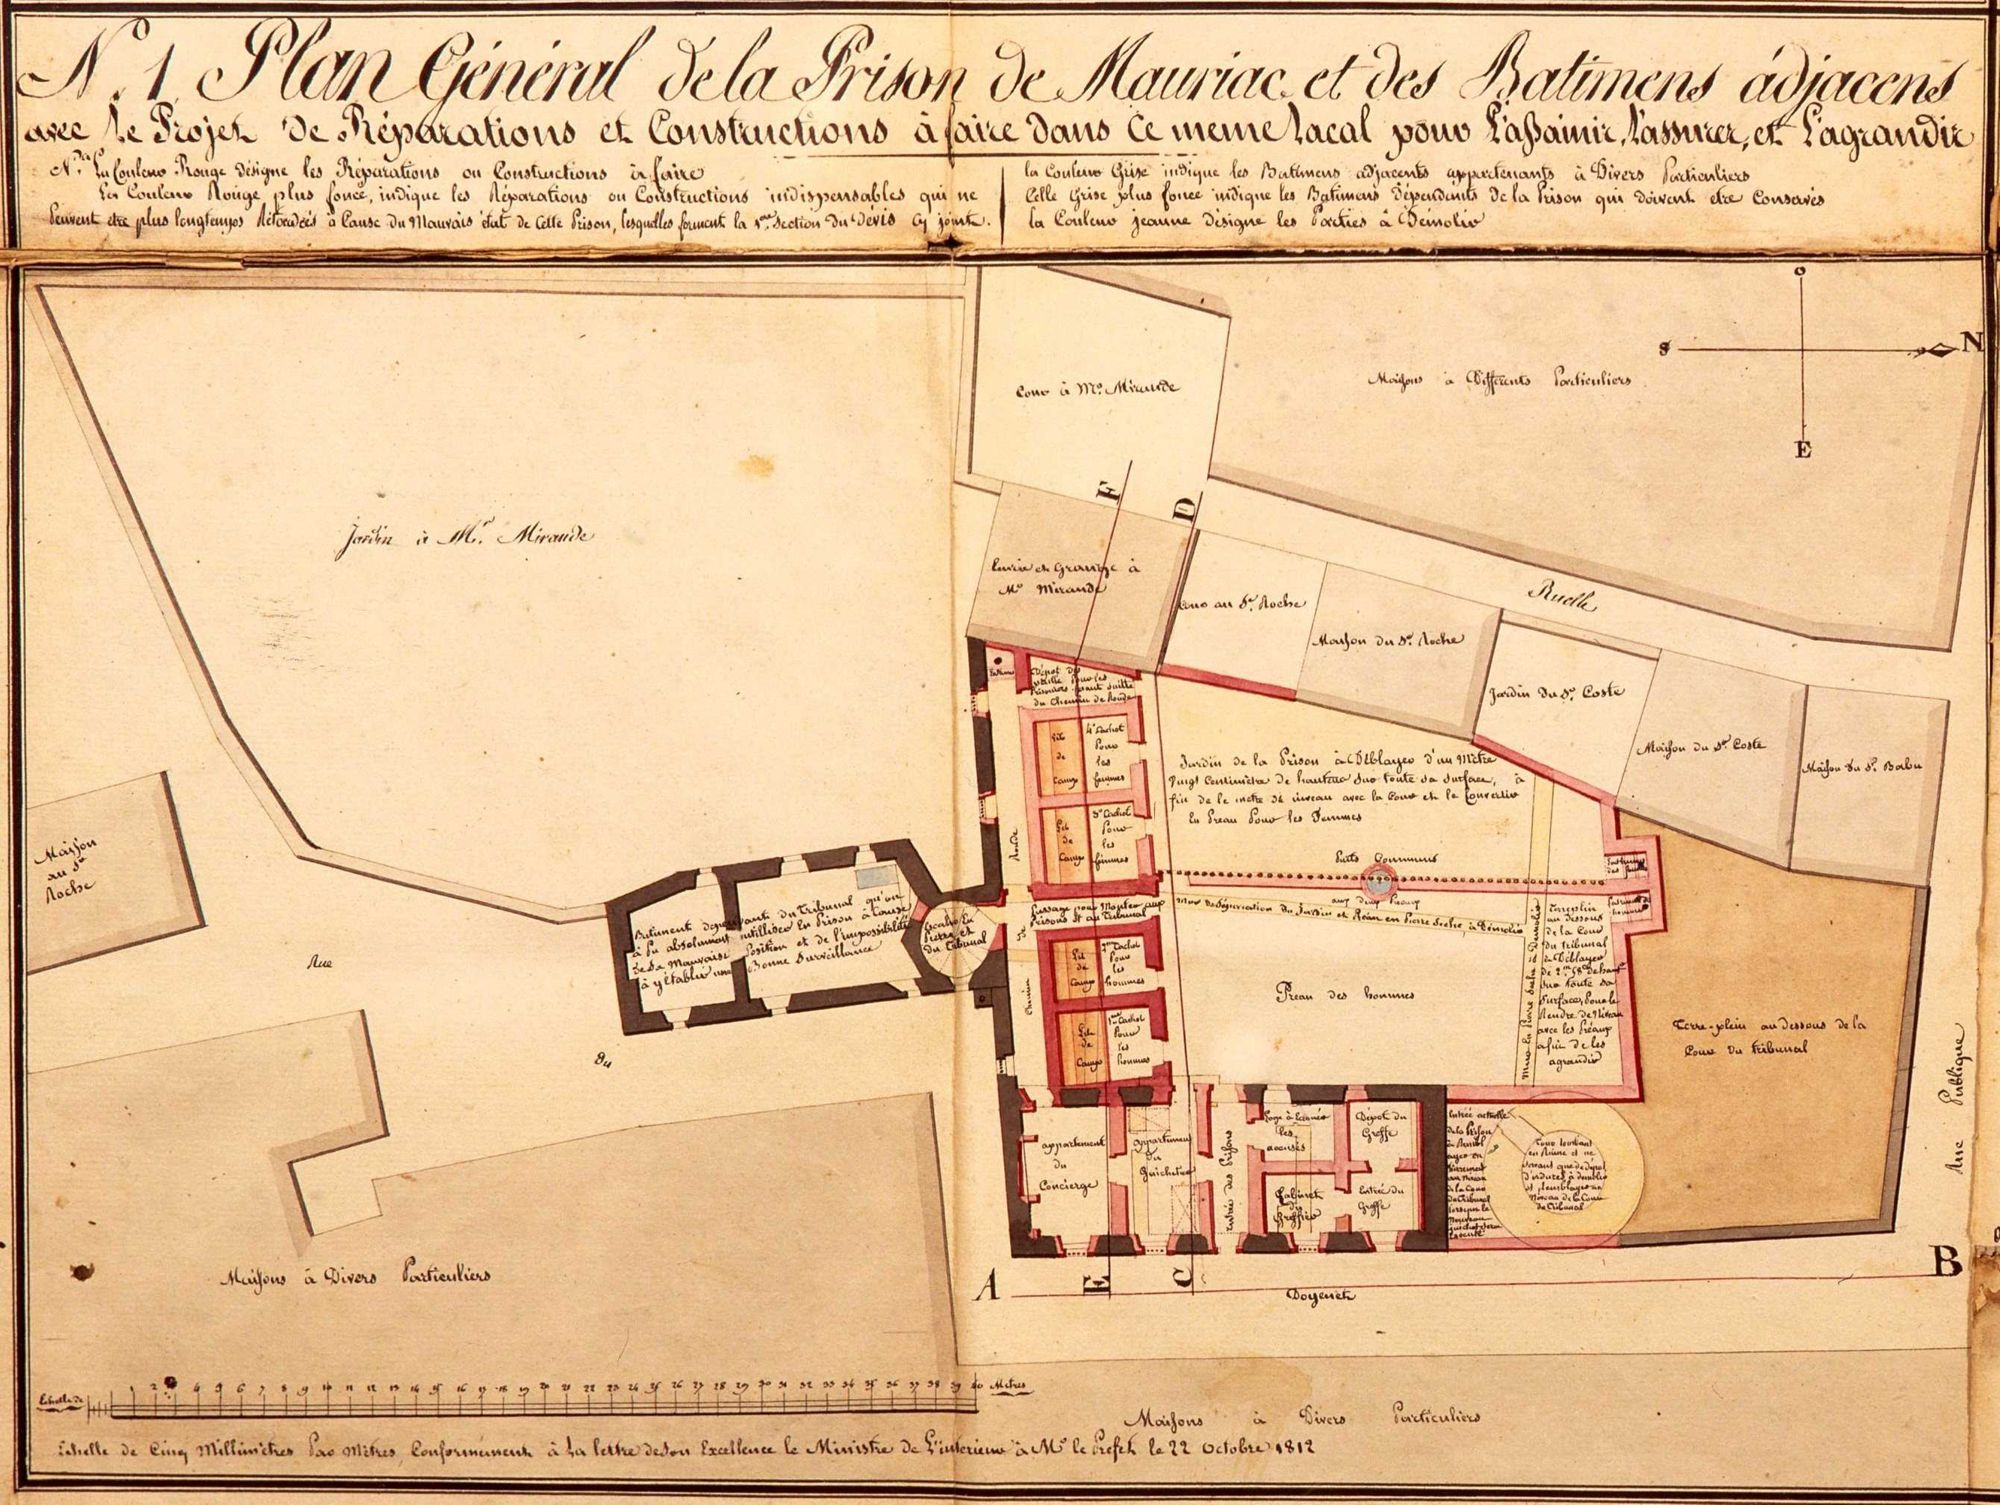 N. 1. Plan Général de la Prison de Mauriac et des Batimens adjacens
avec le Projet de Réparations et Constructions à faire dans ce meme Local pour L'assainir, L'assurer, et L'agrandir
Nta La Couleur Rouge désigne les Réparations ou Constructions à faire
La Couleur Rouge plus foncé, indique les Réparations ou Constructions indispensables qui ne
Peuvent etre plus longtemps Retardées à Cause du Mauvais état de Cette Prison, lesquelles forment la 1ere Section du Devis Cy jointe.
la Couleur Grise indique les Batimens adjacents appartenants à Divers Particuliers
Celle Grise plus foncé indique les Batimens Dépendants de la Prison qui doivent etre Conservés
la Couleur jeaune désigne les Parties à Démolir
O
S
N
E
Cour à Mr. Mirande
Maisons à Différents Particuliers
Jardin à Mr. Mirande
F
D
Ecurie et Grange à
Mr Mirande
Cour au Sr. Roche
Maison du Sr. Roche
Ruelle
Jardin du Sr. Coste
Maison du Sr. Coste
Maison du Sr. Babu
Dépot des
Prisoniers
du Chemin de Ronde
Lit
de
Camp
4e Cachot
Pour
les
femmes
Lit
de
Camp
3e Cachot
Pour
les
femmes
Jardin de la Prison à Déblayer d'un Mètre
Vingt Centimètre de hauteur sur toute sa surface, à
fin de le metre de niveau avec la Cour et le Convertir
En Preau Pour les Femmes
Puits Commun
aux deux Preaux
Mur de Séparation du Jardin et Préau en Pierre Seche, à Démolir
Passage pour Monter aux
Prisons et au Tribunal
Chemin
de
Ronde
Escalier En
Pierre et
du Tribunal
Batiment dependant du Tribunal qu'on
à pu absolument utilliser En Prison à Cause
de sa Mauvaise Position et de l'impossibilité
à y Etablir une Bonne Surveillance
Lit
de
Camp
2eme Cachot
Pour
les
hommes
Lit
de
Camp
1er Cachot
Pour
les
hommes
Preau des hommes
Mur En Pierre Seche à Demolir
Terreplin
au dessous
de la Cour
du tribunal
à Déblayer
Sur toute Sa
Surface, Pour le
Rendre de Niveau
avec les Préaux
afin de les
agrandir
Terre-plein au dessous de la
Cour du tribunal
Maison
au Sr
Roche
Rue
du
Doyenet
Rue Publique
Appartement
du
Concierge
Appartement
du
Guichetier
Entrée des Prisons
Loge à
les
accusés
Dépot du
Greffe
Cabinet
du
Greffier
Entrée du
Greffe
Entrée actuelle
de la Prison
Tour tombant
en Ruine et ne
de la Cour
du Tribunal
A
E
C
B
Maisons à Divers Particuliers
Echelle de
1 2 4 5 6 7 8 9 10 11 12 13 14 15 16 17 18 19 20 21 22 23 24 25 26 27 28 29 30 31 32 33 34 35 36 37 38 39 40 Mètres
Maisons à Divers Particuliers
Echelle de Cinq Millimètres Par Mètres, Conformément à La lettre de Son Excellence le Ministre de L'interieur à Mr le Prefet le 22 Octobre 1812